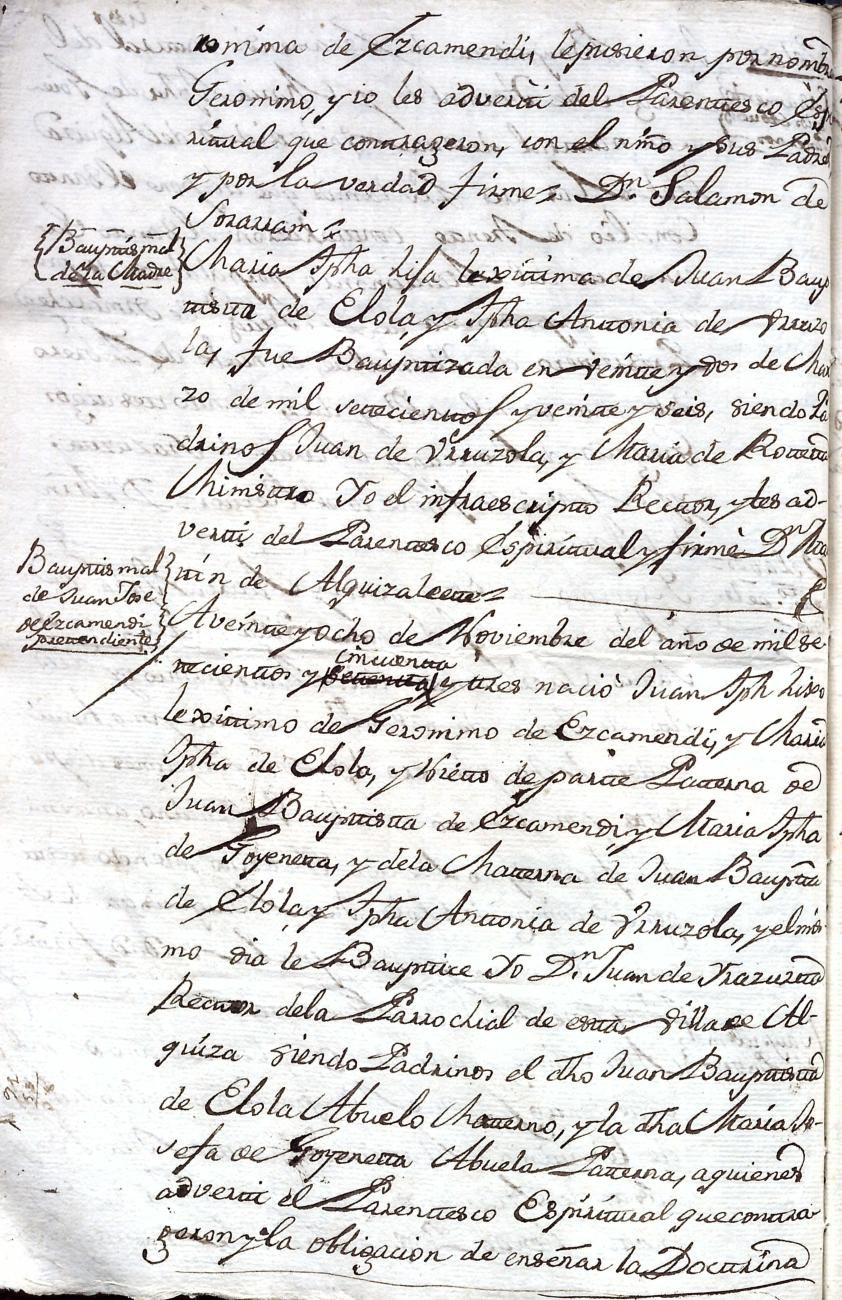 ronima de Ezcamendi, le pusieron por nombre
Geronimo, y io les adverti del Parentesco Espi
ritual que contrageron, con el niño y sus Padres,
y por la verdad firme Dn. Salamon de
Sorarrain
Bauptismal
de la Madre
Maria Jpha hija lexittima de Juan Baup
tistta de Elola, y Jpha Anttonia de Urruzo
la, fue Bauptizada en veintte y dos de Mar
zo de mil settecienttos y veintte y seis, siendo Pa
drinos Juan de Urruzola, y Maria de
Ministro Yo el infraescripto Recttor, y les ad-
vertti del Parenttesco Espirittual y firmè Dn. Mar
ttin de Alquizalette
Bauptismal
de Juan Jose
de Ezcamendi
prettendiente
A veintte y ocho de Noviembre del año de mil se
ttecienttos y cincuentta settentta y ttres naciò Juan Jph hijo
lexittimo de Geronimo de Ezcamendi, y Maria
Jpha de Elola, y Nietto de partte Patterna de
Juan Bauptistta de Ezcamendi, y Maria Jpha
de Goyenetta, y de la Matterna de Juan Bauptta
de Elola, y Jpha Anttonia de Urruzola, y el mis-
mo dia le Baupttice Yo Dn. Juan de Yrazuzta
Recttor de la Parrochial de estta Villa de Al-
quiza siendo Padrinos el dho Juan Bauptistta
de Elola Abuelo Matterno, y la dha Maria Jo-
sefa de Goyenetta Abuela Patterna, a quienes
advertti el Parenttesco Espirittual que conttra
geron y la obligacion de enseñar la Docttrina